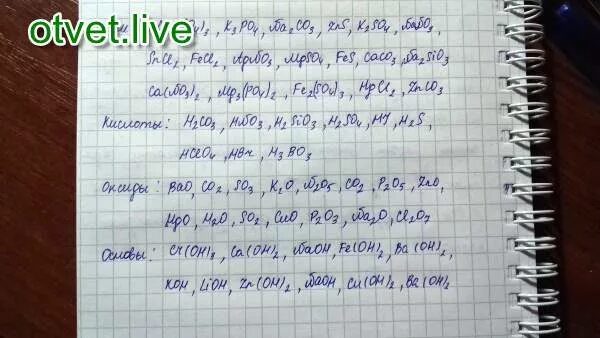 otvet.live
)₃, K₃PO₄, Na₂CO₃, ZnS, K₂SO₄, NaNO₃,
SnCl₂, FeCl₂, AgNO₃, MgSO₄, FeS, CaCO₃, Na₂SiO₃
Ca(NO₃)₂, Mg₃(PO₄)₂, Fe₂(SO₄)₃, HgCl₂, ZnCO₃
Кислоты: H₂CO₃, HNO₃, H₂SiO₃, H₂SO₄, HI, H₂S,
HClO₄, HBr, H₃BO₃
Оксиды: BaO, CO₂, SO₃, K₂O, N₂O₅, CO₂, P₂O₅, ZnO,
HgO, H₂O, SO₂, CuO, P₂O₃, Na₂O, Cl₂O₇
Основы: Cr(OH)₃, Ca(OH)₂, NaOH, Fe(OH)₂, Ba(OH)₂,
KOH, LiOH, Zn(OH)₂, NaOH, Cu(OH)₂, Ba(OH)₂